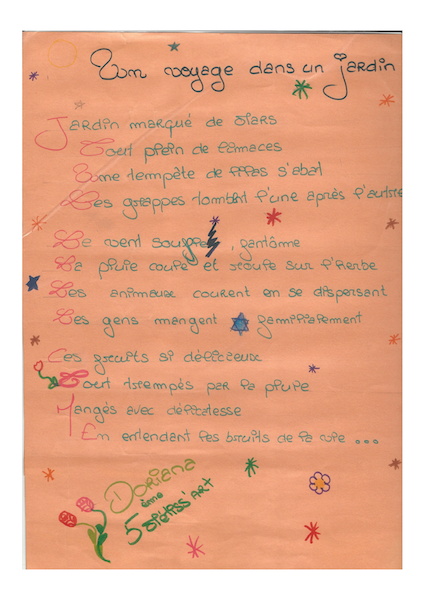 Un voyage dans un jardin
Jardin marqué de stars
Tout plein de limaces
Une tempête de lilas s'abat
Les grappes tombent l'une après l'autre
Le vent souffle, fantôme
La pluie coule et roule sur l'herbe
Les animaux courent en se dispersant
Les gens mangent familialement
Ces fruits si délicieux
Tout trempés par la pluie
Mangés avec délicatesse
En entendant les bruits de la rue ...
Doriana
5ème